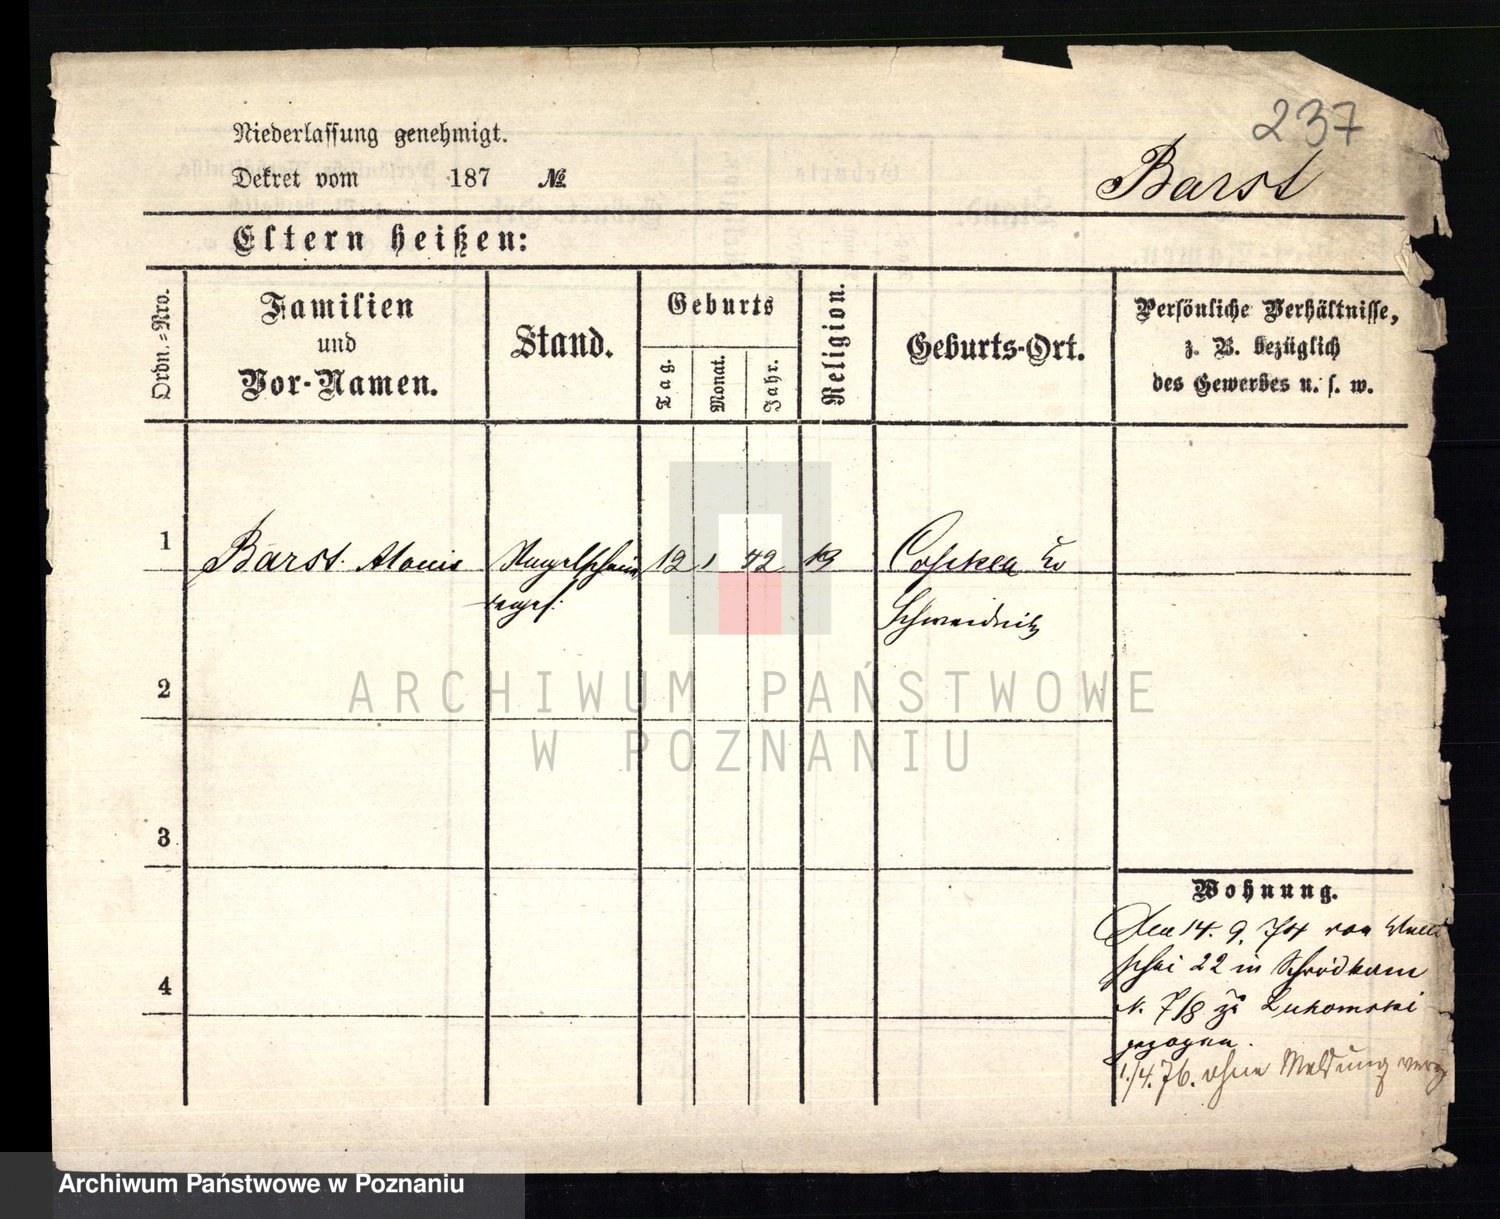 237
Niederlassung genehmigt.
Dekret vom 187 №
Barst
Eltern heißen:
Ordn.=Nro.
Familien
und
Vor-Namen.
Stand.
Geburts
Tag.
Monat.
Jahr.
Religion.
Geburts-Ort.
Persönliche Verhältnisse,
z. B. bezüglich
des Gewerbes u. s. w.
1
Barst. Alouis
12 1 42
Schweidnitz
2
ARCHIWUM PAŃSTWOWE
W POZNANIU
3
Wohnung.
Den 14. 9. 74 von
22 in Schrödkam
N. 7/8 zu Lukomski
gezogen.
4
1./4.76. ohne Meldung verz
Archiwum Państwowe w Poznaniu